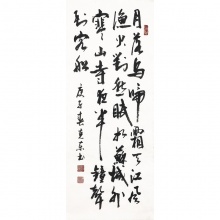 月落烏啼霜天江楓
漁火對愁眠姑蘇城外
寒山寺夜半鐘聲
到客船
庚子春書